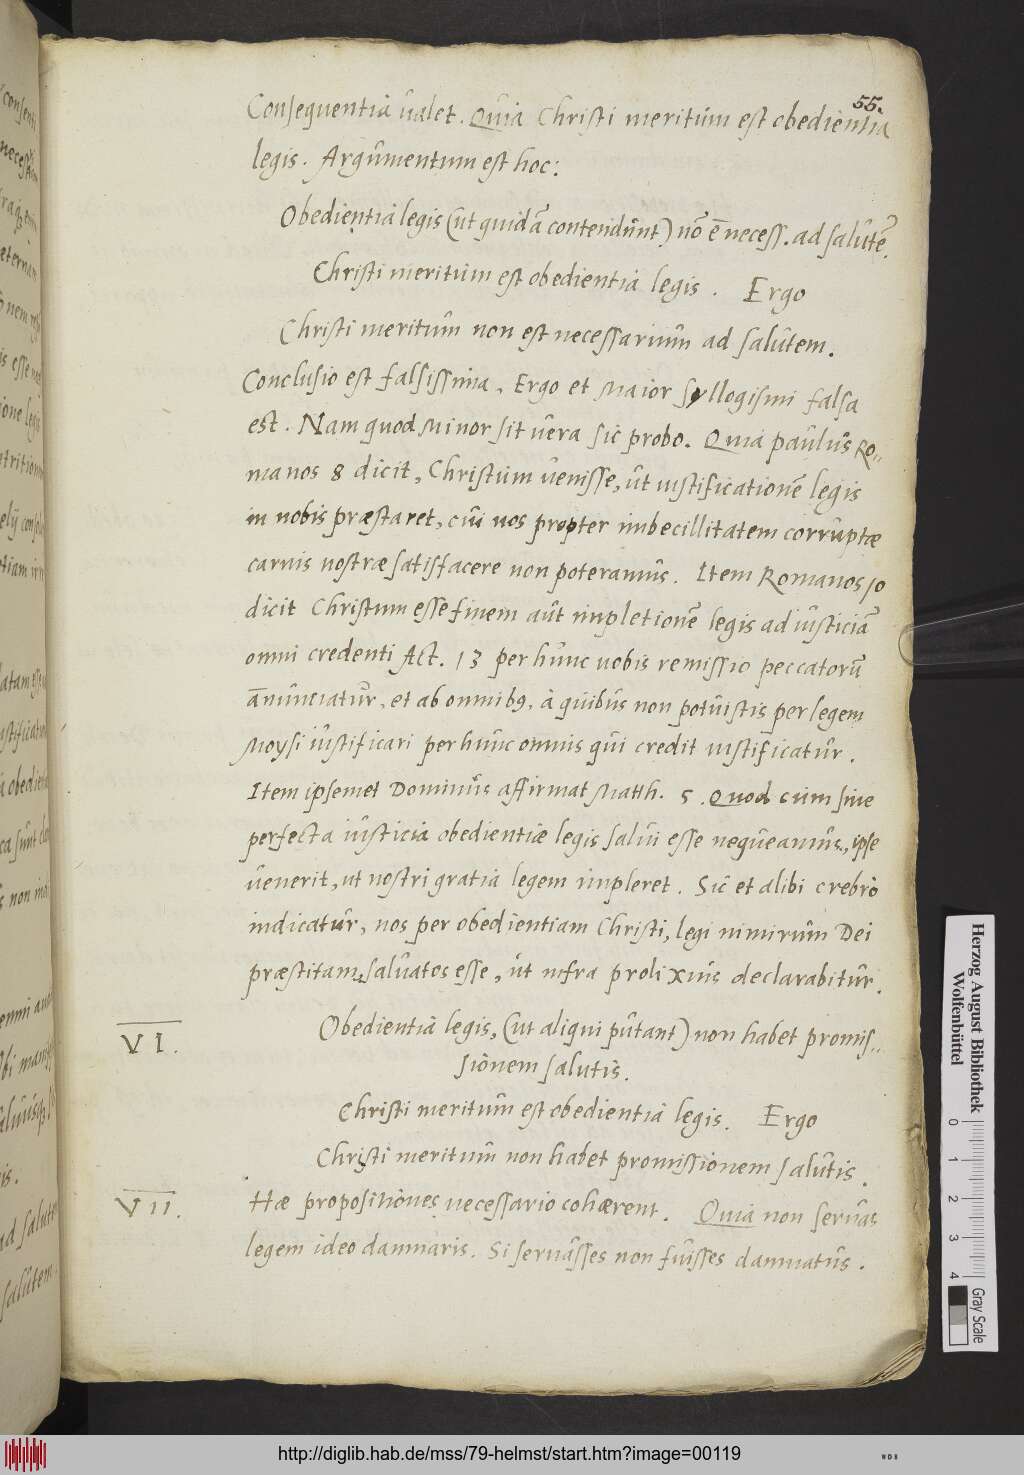 55.
Consequentia ualet. Quia Christi meritum est obedientia
legis. Argumentum est hoc:
Obedientia legis (ut quidā contendunt) nō ē necess. ad salutē.
Christi meritum est obedientia legis. Ergo
Christi meritum non est necessarium ad salutem.
Conclusio est falsissima, Ergo et Maior syllogismi falsa
est. Nam quod Minor sit uera sic probo. Quia paulus Ro-
manos 8 dicit, Christum uenisse, ut iustificationē legis
in nobis præstaret, cū nos propter imbecillitatem corruptæ
carnis nostræ satisfacere non poteramus. Item Romanos 10
dicit Christum esse finem aut impletionē legis ad iusticiā
omni credenti Act. 13 per hunc uobis remissio peccatorū
ānunciatur, et ab omnibꝰ, à quibus non potuistis per legem
Moysi iustificari per hunc omnis qui credit iustificatur.
Item ipsemet Dominus affirmat Matth. 5. Quod cum sine
perfecta iusticia obedientiæ legis salui esse nequeamus, ipse
uenerit, ut nostri gratia legem impleret. Sic et alibi crebrò
indicatur, nos per obedientiam Christi, legi nimirum Dei
præstitam, saluatos esse, ut infra prolixius declarabitur.
VI. Obedientia legis, (ut aliqui putant) non habet promis-
sionem salutis.
Christi meritum est obedientia legis. Ergo
Christi meritum non habet promissionem salutis.
VII. Hæ propositiones necessario cohærent. Quia non seruas
legem ideo damnaris. Si seruasses non fuisses damnatus.
Herzog August Bibliothek
Wolfenbüttel
0 1 2 3 4
Gray Scale
http://diglib.hab.de/mss/79-helmst/start.htm?image=00119